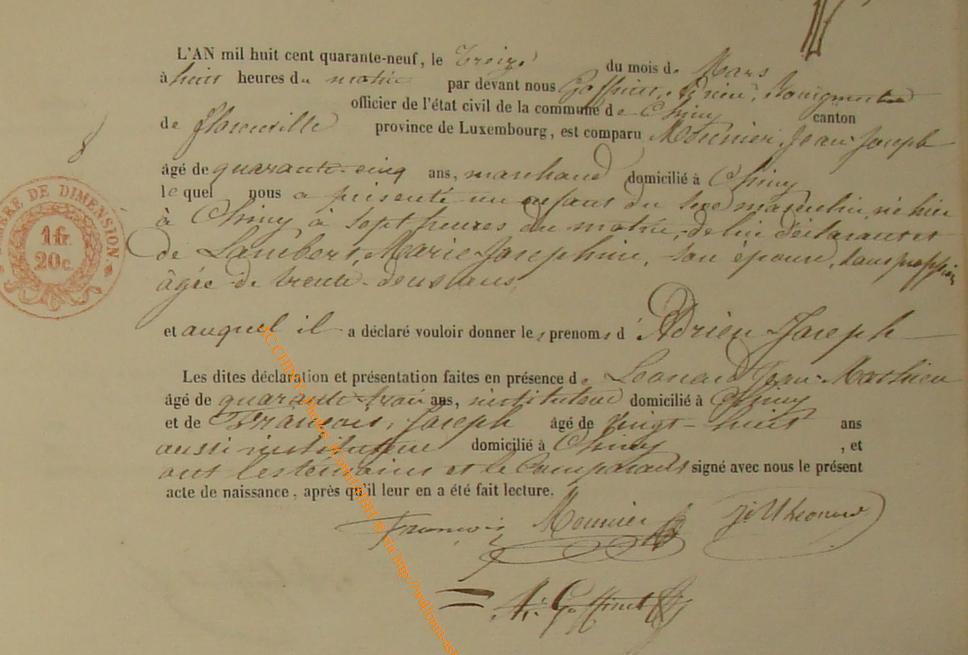 L'AN mil huit cent quarante-neuf, le Treize du mois de Mars
à huit heures du matin par devant nous Goffinet, Adrien, Bourgmestre
officier de l'état civil de la commune de Chiny canton
de florenville province de Luxembourg, est comparu Mounier, Jean Joseph
âgé de quarante-cinq ans, marchand domicilié à Chiny
le quel nous a présenté un enfant du sexe masculin, né hier
à Chiny à sept heures du matin, de lui déclarant et
de Lambert, Marie-Josephine, son épouse, sans profession
âgée de trente-deux ans,
et auquel il a déclaré vouloir donner les prenoms d' Adrien-Joseph
Les dites déclaration et présentation faites en présence de Leonard Jean-Mathieu
âgé de quarante-trois ans, instituteur domicilié à Chiny
et de François, Joseph âgé de vingt-huit ans
aussi instituteur domicilié à Chiny, et
ont les témoins et le comparant signé avec nous le présent
acte de naissance, après qu'il leur en a été fait lecture.
François Mounier JM Leonard
A. Goffinet
TIMBRE DE DIMENSION
1 fr.
20c.